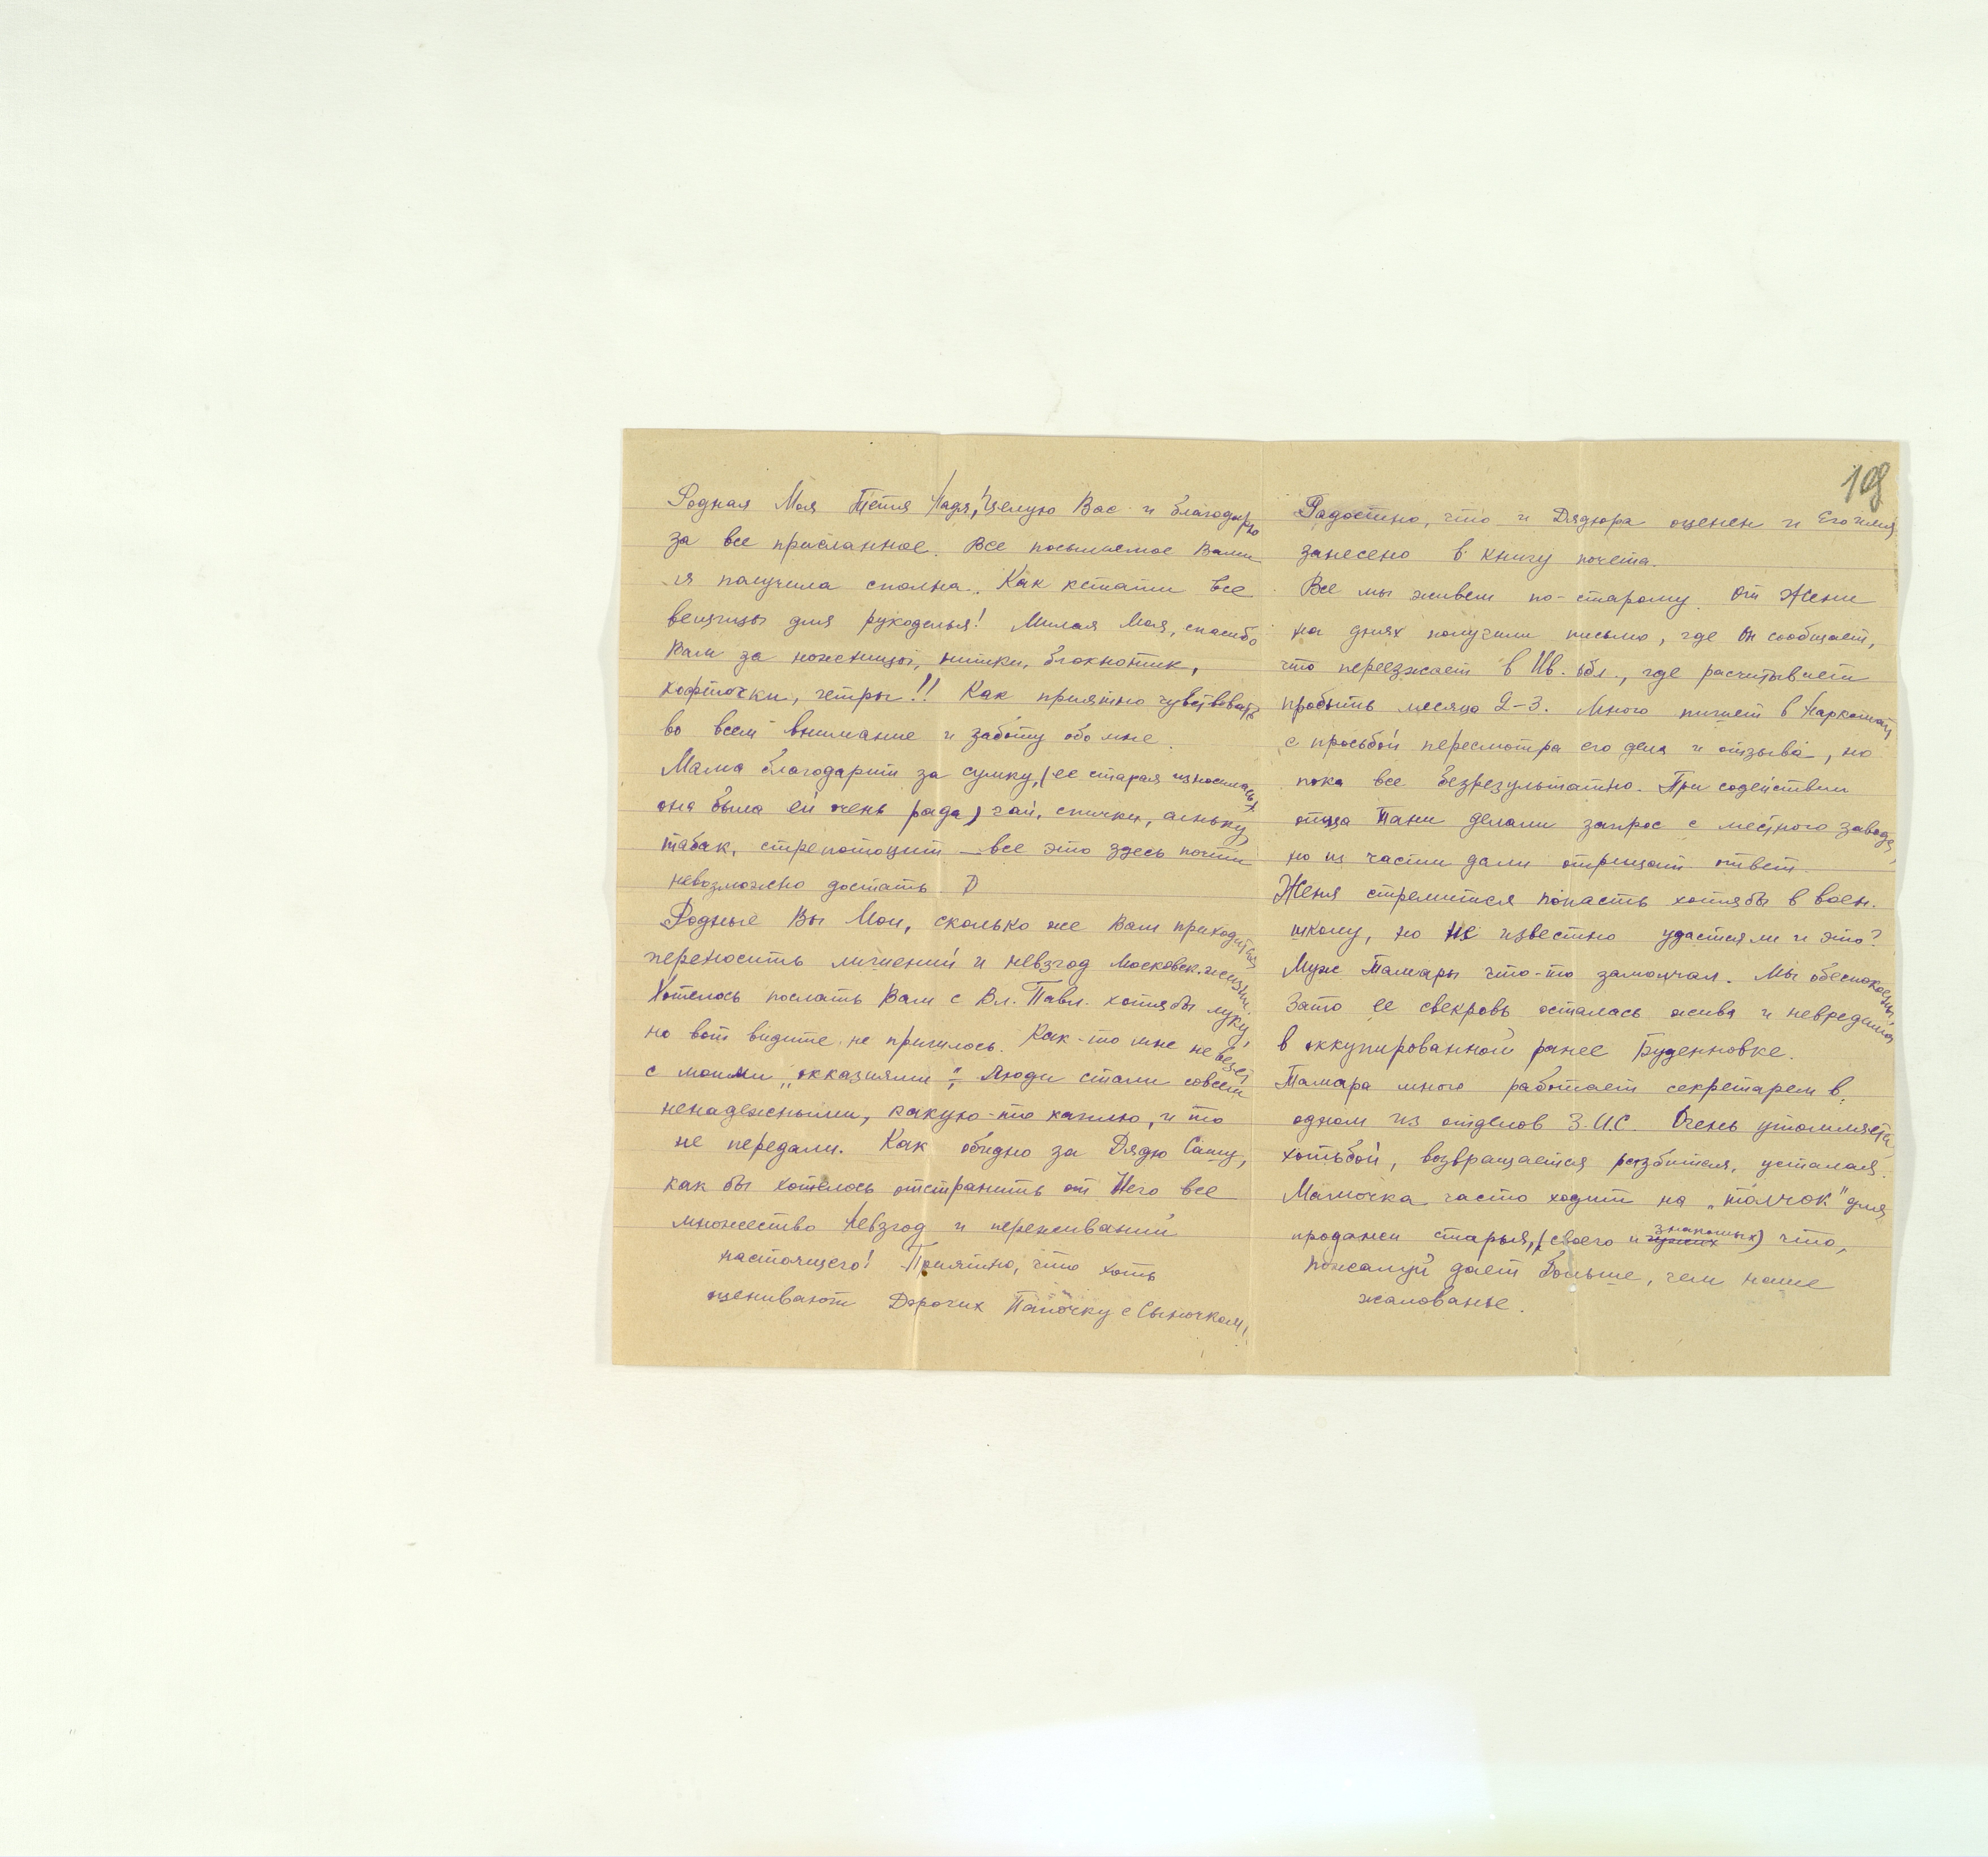 Родная Моя Тетя Надя, Целую Вас и благодарю
за все присланное. Все посылаемое Вами
я получила сполна. Как кстати все
вещицы для рукоделья! Милая Моя, спасибо
Вам за ножницы, нитки, блокнотик,
кофточки, гетры!! Как приятно чувствовать
во всем внимание и заботу обо мне.
Мама благодарит за сумку, (ее старая износилась,
она была ей очень рада) чай, спички,
табак, стрептоцит — все это здесь почти
невозможно достать.
Родные Вы Мои, сколько же Вам приходится
переносить лишений и невзгод Московск. жизни.
Хотелось послать Вам с Вл. Павл. хотябы луку,
но вот видите не пришлось. Как-то мне не везет
с моими „окказиями". Люди стали совсем
ненадежными, какую-то каплю, и то
не передали. Как обидно за Дядю Сашу,
как бы хотелось отстранить от Него все
множество невзгод и переживаний
настоящего! Приятно, что хоть
оценивают Дорогих Папочку с Сыночком!
108
Радостно, что и Дядюра оценен и Его имя
занесено в книгу почета.
Все мы живем по-старому. От Жени
на днях получили письмо, где Он сообщает,
что переезжает в Ив. обл., где расчитывает
пробыть месяца 2-3. Много пишет в Наркомат
с просьбой пересмотра его дела и отзыва, но
пока все безрезультатно. При содействии
отца Тани делали запрос с местного завода,
но из части дали отрицат. ответ.
Женя стремится попасть хотябы в воен.
школу, но не известно удастся ли и это?
Муж Тамары что-то замолчал. Мы обеспокоены,
Зато ее свекровь осталась жива и невредима
в оккупированной ранее Буденновке.
Тамара много работает секретарем в
одном из отделов З.И.С. Очень утомляется
хотьбой, возвращается разбитая, усталая.
Мамочка часто ходит на „толчок" для
продажи старья, (своего и знакомых) что,
пожалуй дает больше, чем наше
жалованье.